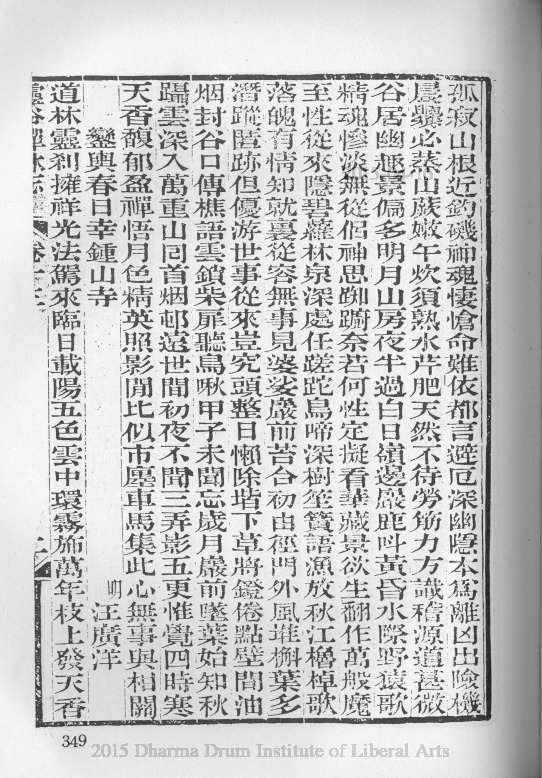 孤寂山根近釣磯神魂悽愴命難依都言避厄深幽隱本爲離凶出險機
屢爨必蒸山蕨嫩午炊須熟水芹肥天然不待勞筋力方識稽源道甚微
谷居幽趣景偏多明月山房夜半過白日嶺邊嚴鹿呌黃昏水際野猿歌
精魂慘淡無從侶神思踟躕奈若何性定擬看華藏景欲生翻作萬般魔
至性從來隱碧蘿林泉深處任蹉跎鳥啼深樹笙簧語漁放秋江櫓棹歌
落魄有情知就裏從容無事見婆娑巖前苔合初由徑門外風堆槲葉多
潛蹤匿跡但優游世事從來豈究頭整日懶除堦下草將鐙倦點壁間油
烟封谷口傳樵語雲鎖柴扉聽鳥啾甲子未聞忘歲月巖前墜葉始知秋
躡雲深入萬重山囘首烟邨遠世間初夜不聞三弄影五更惟覺四時寒
天香馥郁盈禪悟月色精英照影閒比似市廛車馬集此心無事與相關
鑾輿春日幸鍾山寺
明 汪廣洋
道林靈刹擁祥光法駕來臨日載陽五色雲中環霧旆萬年枝上發天香
靈谷禪林志 卷十三
349
2015 Dharma Drum Institute of Liberal Arts